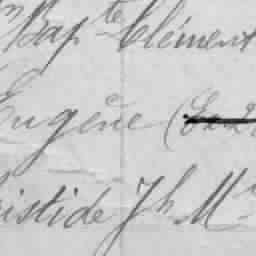 Bap.te Clément
Eugène (
istide Jh M